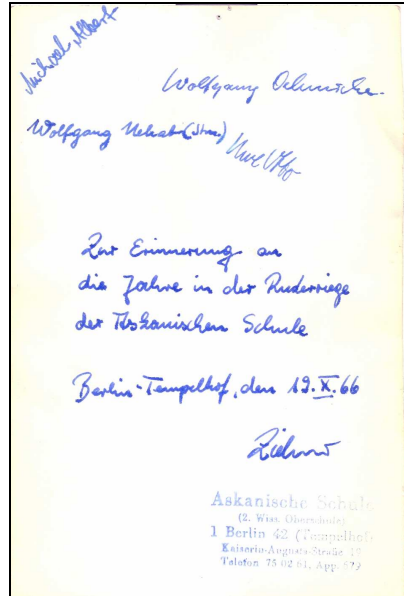 Michael Albert
Wolfgang
Wolfgang (Stm.)
Uwe Otto
Zur Erinnerung an
die Jahre in der Ruderriege
der Askanischen Schule
Berlin-Tempelhof, den 19.X.66
Askanische Schule
(2. Wiss. Oberschule)
1 Berlin 42 (Tempelhof)
Kaiserin-Augusta-Straße
Telefon 75 02 61, App. 579